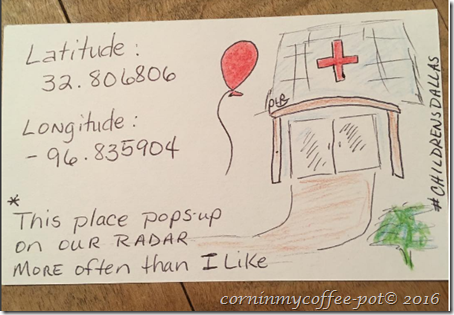 Latitude:
32.806806
Longitude:
-96.835904
*
This place pops-up
on our RADAR
More often than I Like
PLB
#CHILDRENSDALLAS
corninmycoffee-pot© 2016